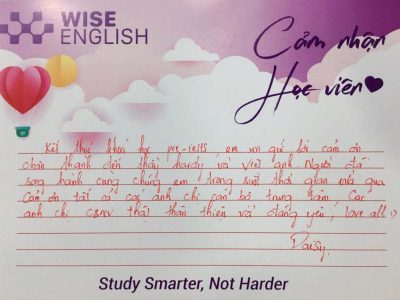 WISE
ENGLISH
Cảm nhận
Học viên
Kết thúc khoá học pre-ielts, em xin gửi lời cảm ơn
chân thành đến thầy hardy và Việt anh. Người đã
song hành cùng chúng em trong suốt thời gian nhà qua
Cảm ơn tất cả các anh chị cán bộ trung tâm Các
anh chị CBNV thật thân thiện và đáng yêu, love all :)
Daisy.
Study Smarter, Not Harder